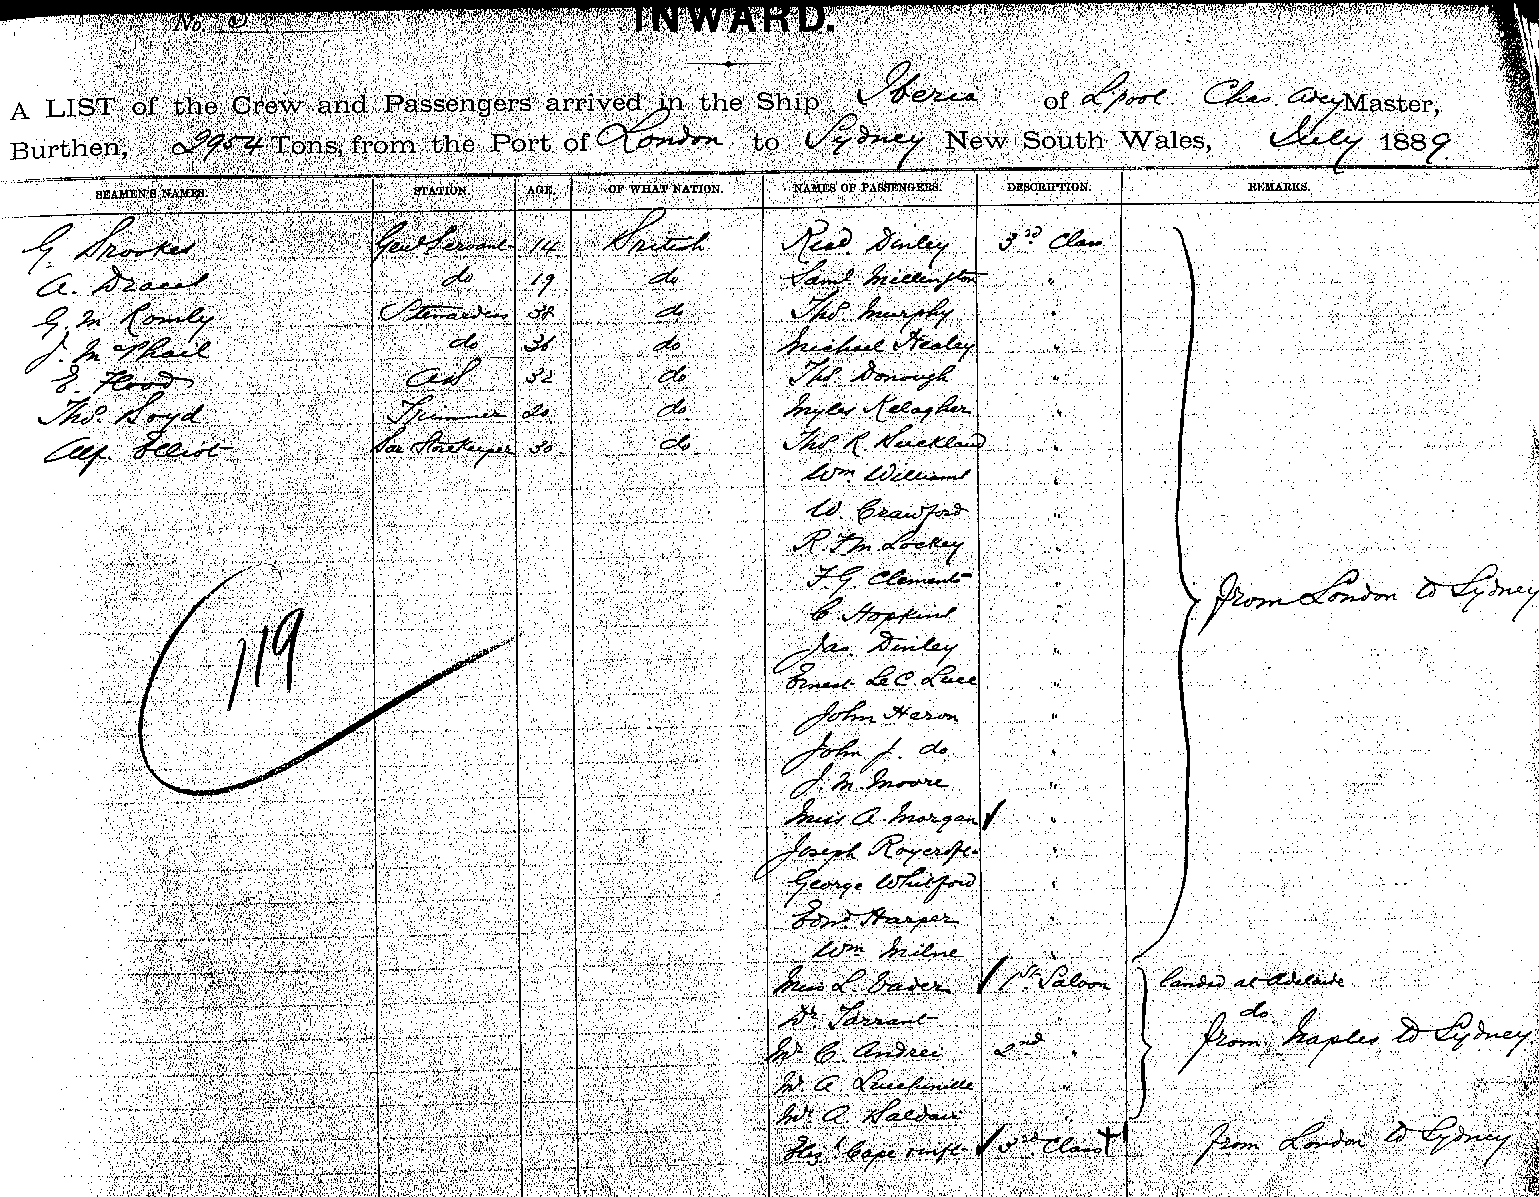 No. 5
INWARD.
A LIST of the Crew and Passengers arrived in the Ship Iberia of Lpool Chas. Master,
Burthen, 2954 Tons, from the Port of London to Sydney New South Wales, July 1889.
SEAMEN'S NAMES. STATION. AGE. OF WHAT NATION. NAMES OF PASSENGERS. DESCRIPTION. REMARKS.
G. Brookes Genl Servant 14 British Read. Dinley 3rd Class
A. do 19 do Saml Millington "
G. M Romly Stewardess 38 do Thos. Murphy "
J. McPhail do 36 do Michael Healey "
E. Flood AB 32 do Thos. Donough "
Thos. Boyd Trimmer 20 do Myles Kelagher "
Alf. Elliot Storekeeper 30 do Thos R. Buckland "
Wm Williams "
W. Crawford "
R. F. M. Lockey "
F. G. Clements "
C Hopkins "
119
from London to Sydney
Jas. Dinley "
Ernest Le C. Luce "
John Heron "
John J. do "
J. M. Moore "
Miss A. Morgan "
Joseph Roycroft "
George Whitford "
Edwd Harper "
Wm Milne "
Miss L. Vaders 1st Saloon landed at Adelaide
Dr Tarrant " do
Mr C. Andrei 2nd " from Naples to Sydney
Mr A "
Mr A. "
Cape 3rd Class from London to Sydney